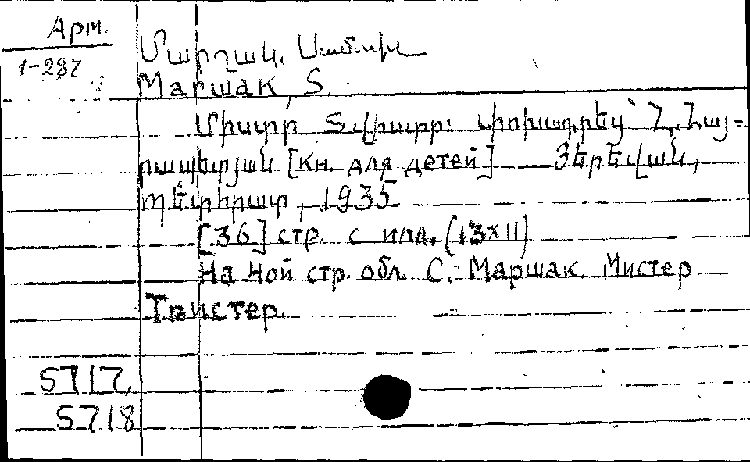 Арм.
1-287
Մարշակ, Սամուիլ
Маршак, S.
Միստր Տվիստր: Փոխադրեց՝ Հ. Հայ-
րապետյան [Кн. для детей] Յերեվան,
Պետհրատ, 1935
[36] стр. с илл. (13x11)
На 4ой стр. обл. С. Маршак. Мистер
Твистер.
5717,
5718